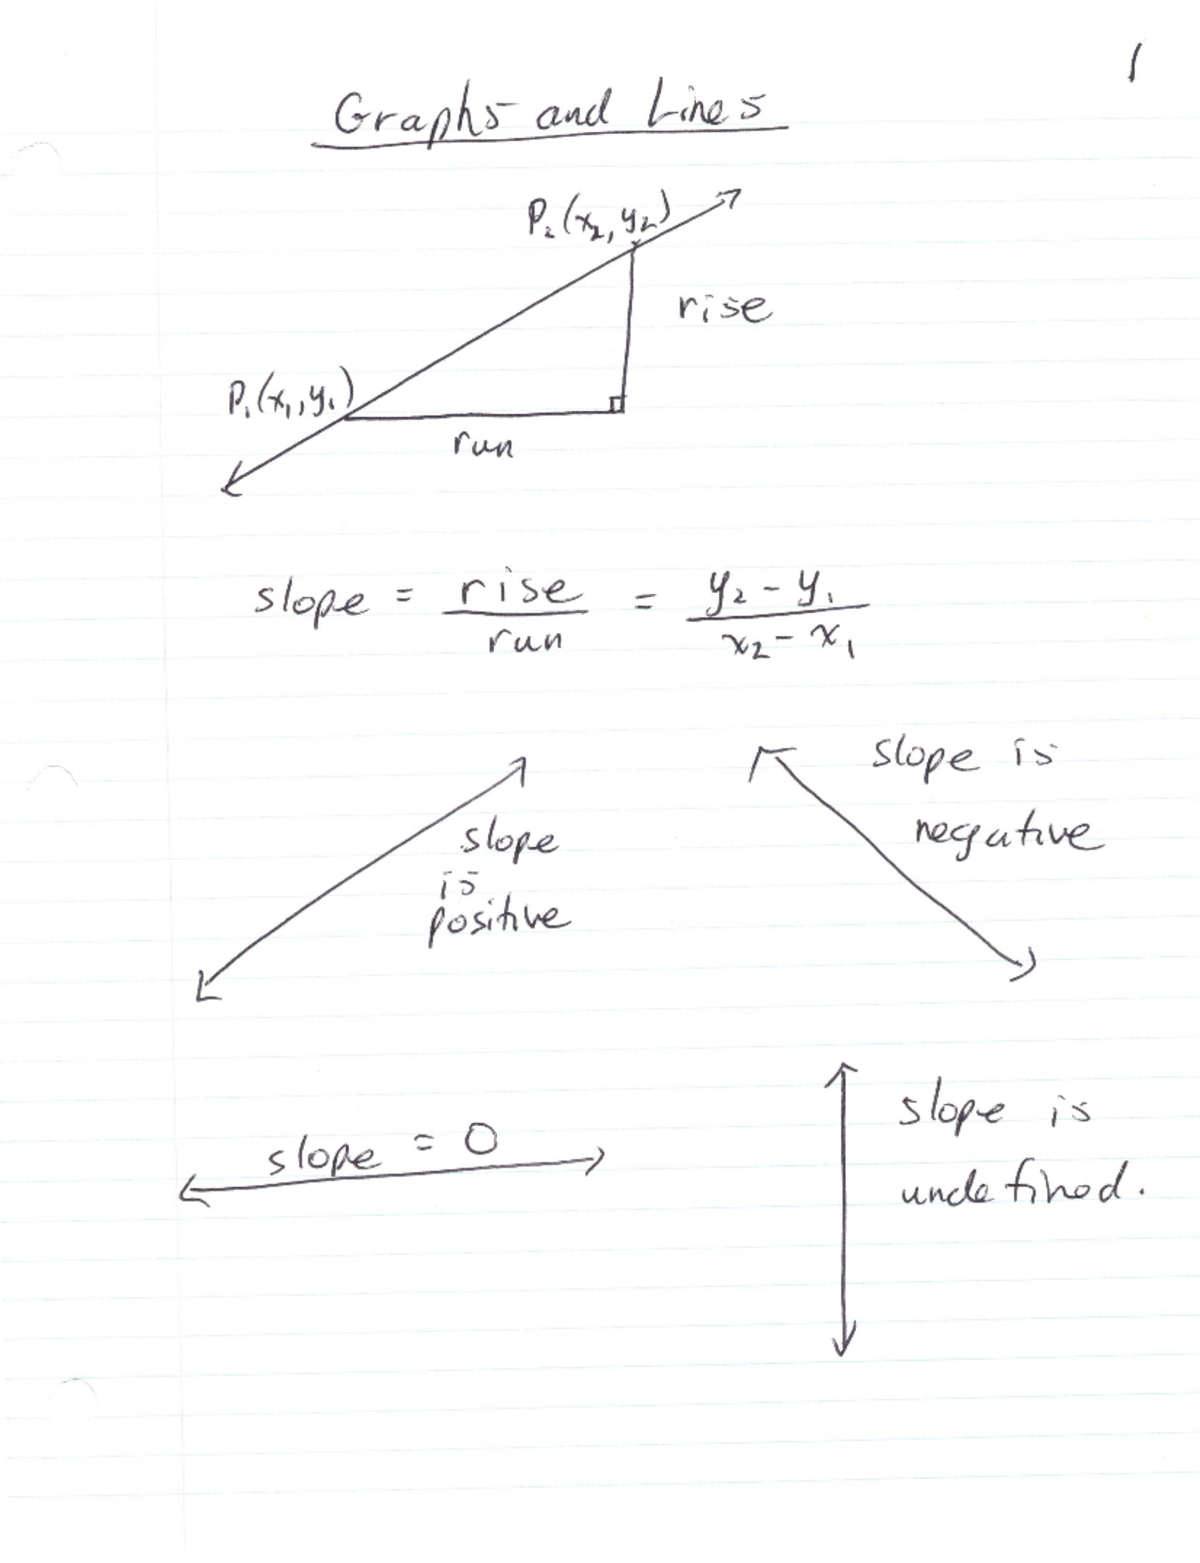 1
Graphs and Lines
P₂(x₂, y₂)
rise
P₁(x₁, y₁)
run
slope = rise/run = (y₂ - y₁)/(x₂ - x₁)
slope is
negative
slope
is
positive
slope = 0
slope is
undefined.